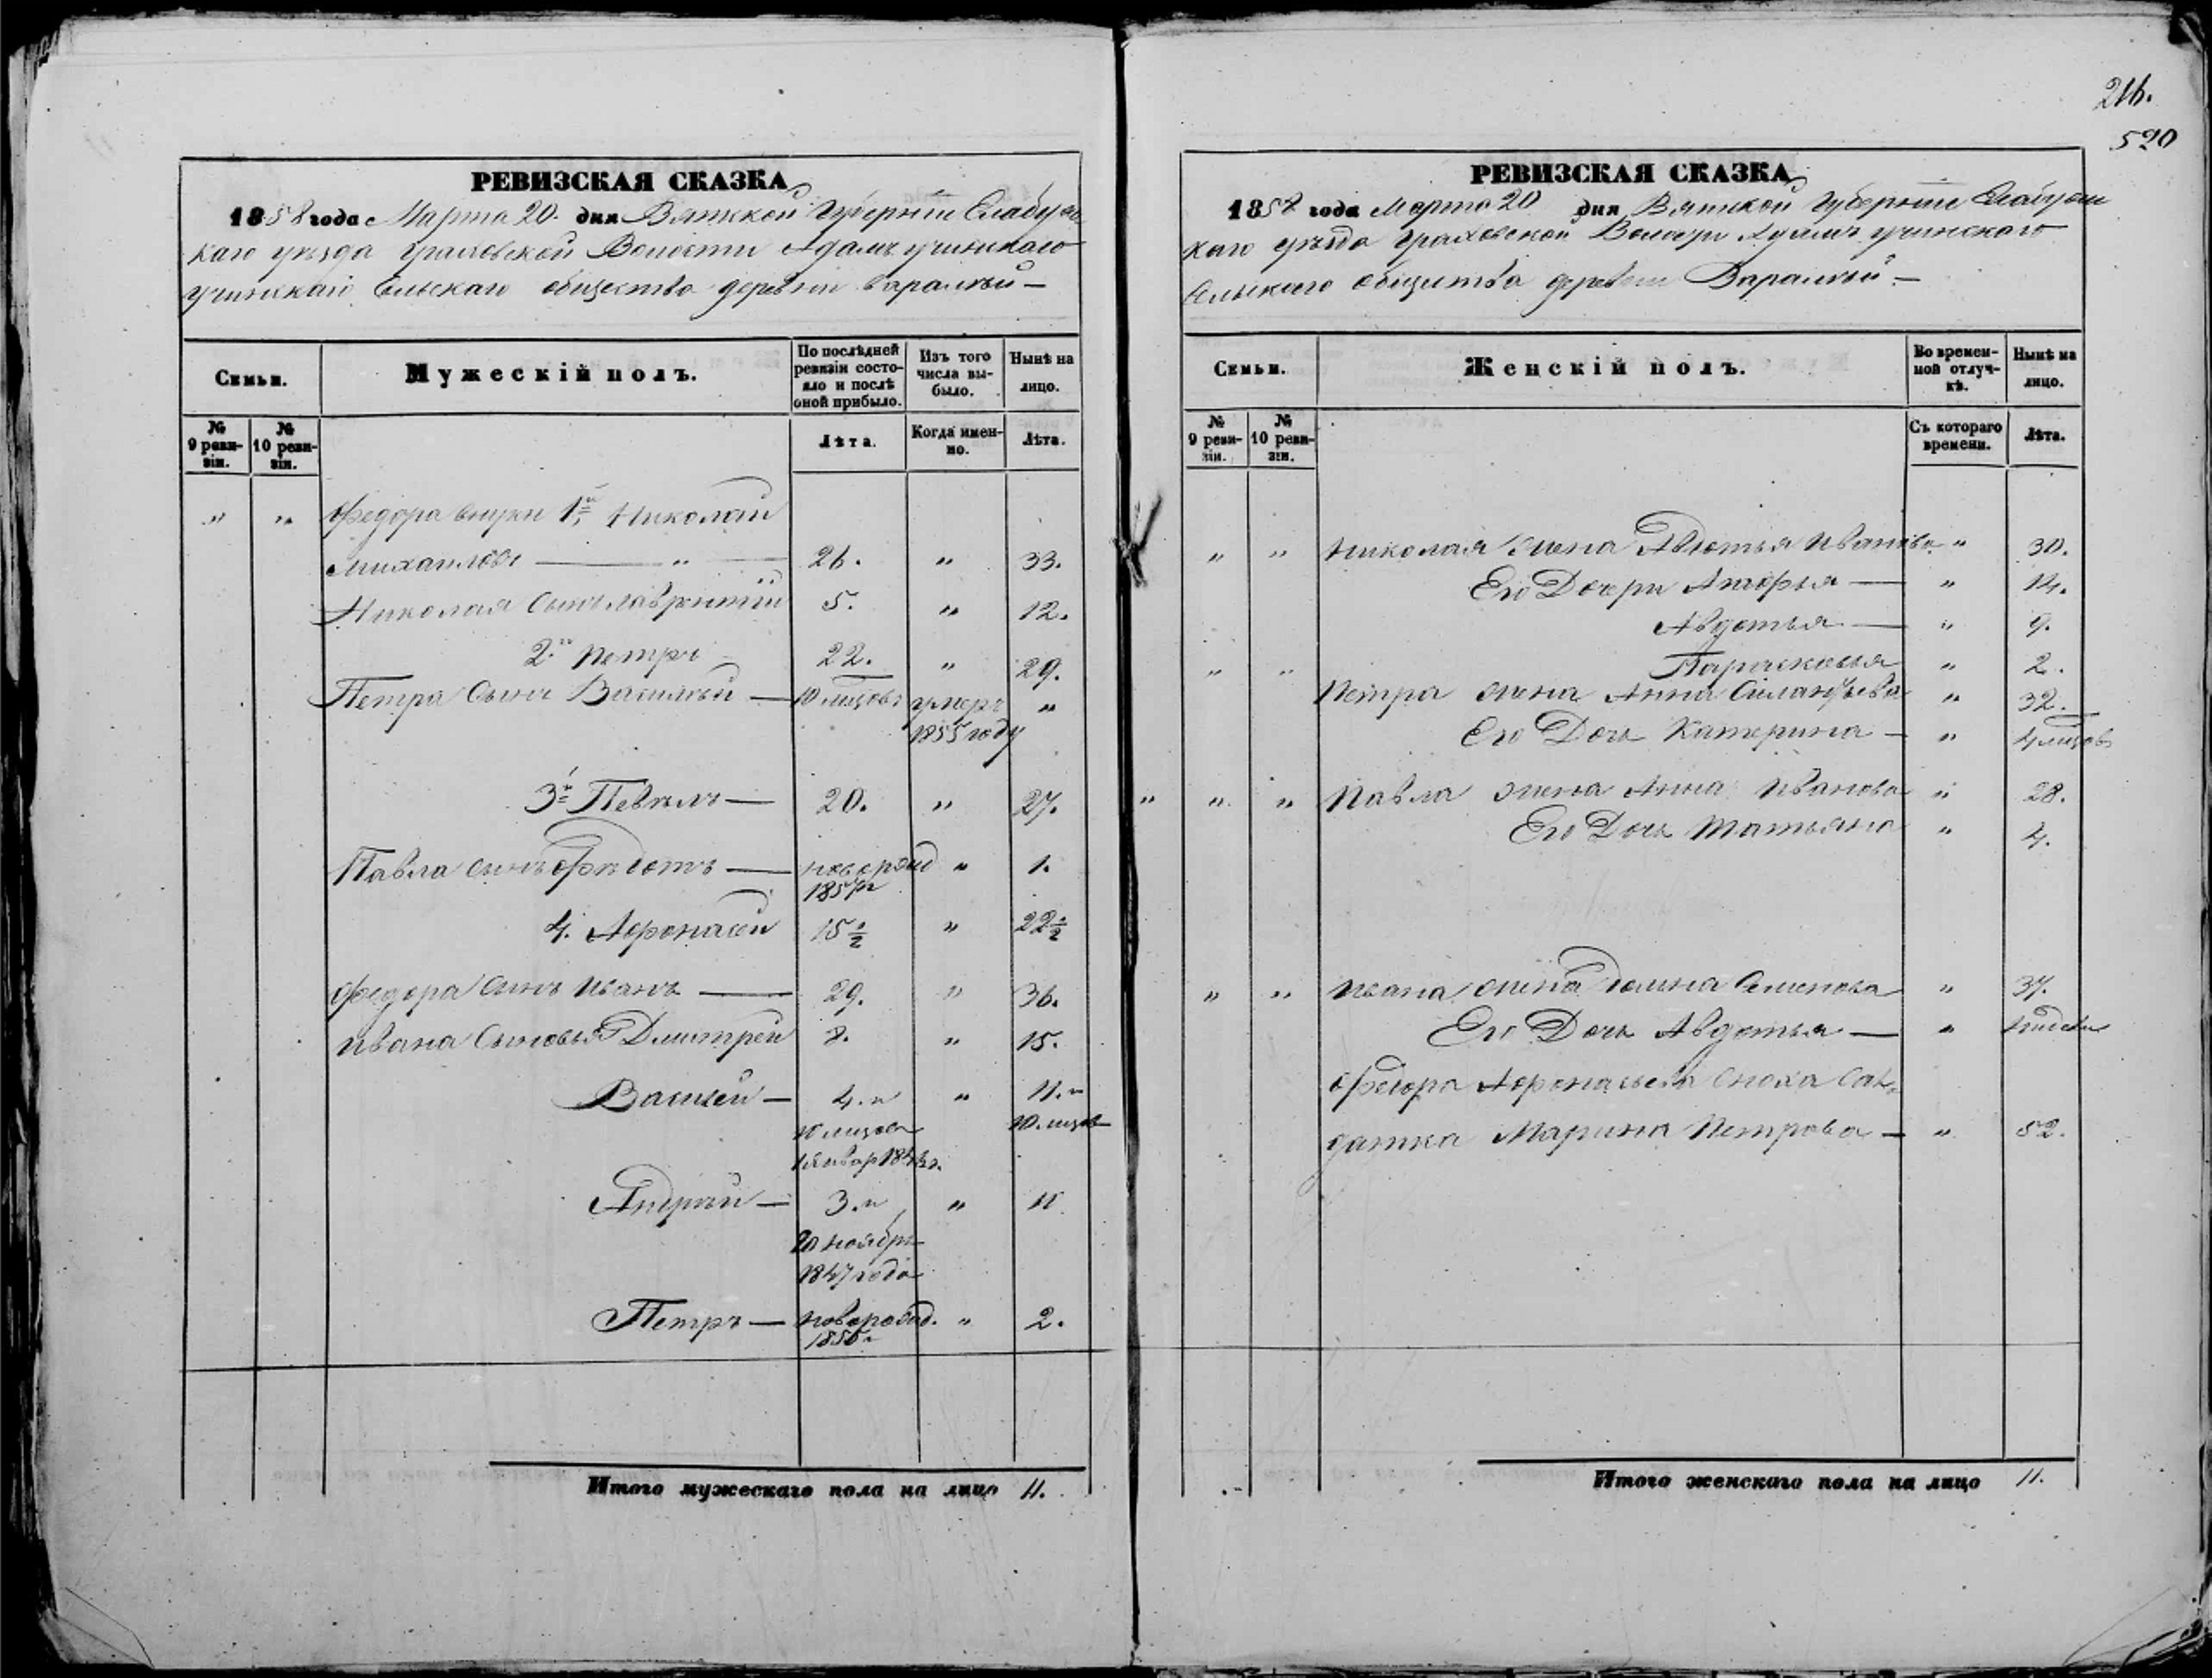 216.
520
РЕВИЗСКАЯ СКАЗКА
1858 года Марта 20. дня Вятской Губернии Елабужс
каго уезда Граховской Волости Адамъ учинскаго
учинскаго Сельскаго общества деревни Варалкъй —
Семьи.
Мужескій полъ.
По послѣдней ревизіи состояло и послѣ оной прибыло.
Изъ того числа выбыло.
Нынѣ на лицо.
№ 9 ревизіи.
№ 10 ревизіи.
Лѣта.
Когда именно.
Лѣта.
" " Федора внуки 1й Николай
Михаиловъ — " — 26. " 33.
Николая сынъ Лаврентій 5. " 12.
2й Петръ 22. " 29.
Петра сынъ Василий — 10 мцовъ умеръ "
1855 году
3й Павелъ — 20. " 27.
Павла сынъ Федотъ — новорожд " 1.
1857г
4. Афонасей 15 1/2 " 22 1/2
Федора сынъ Иванъ — 29. " 36.
Ивана сыновья Дмитрей 8. " 15.
Василей — 4. и " 11. и
10 мцовъ 10. мцов
Андрей — 3. и " 11
20 ноября
1847 года
Петръ — новорожд. " 2.
1856г
Итого мужескаго пола на лицо 11.
РЕВИЗСКАЯ СКАЗКА
1858 года Марта 20 дня Вятской Губернии Елабужс
каго уезда Граховской Волости Адамъ учинскаго
Сельскаго общества деревни Варалкъй —
Семьи.
Женскій полъ.
Во временной отлучкѣ.
Нынѣ на лицо.
№ 9 ревизіи.
№ 10 ревизіи.
Съ котораго времени.
Лѣта.
" " Николая жена Авдотья Иванова " 30.
Его Дочери — " 14.
Авдотья — " 9.
" " Парасковья " 2.
Петра жена Анна Силантьева " 32.
Его Дочь Катерина — " 4 мцовъ
" " " Павла жена Анна Иванова " 28.
Его Дочь Татьяна " 4.
" " Ивана жена Семенова " 37.
Его Дочь Авдотья — "
Федора Афонасьева сноха Сол
датка Марина Петрова — " 52.
Итого женскаго пола на лицо 11.